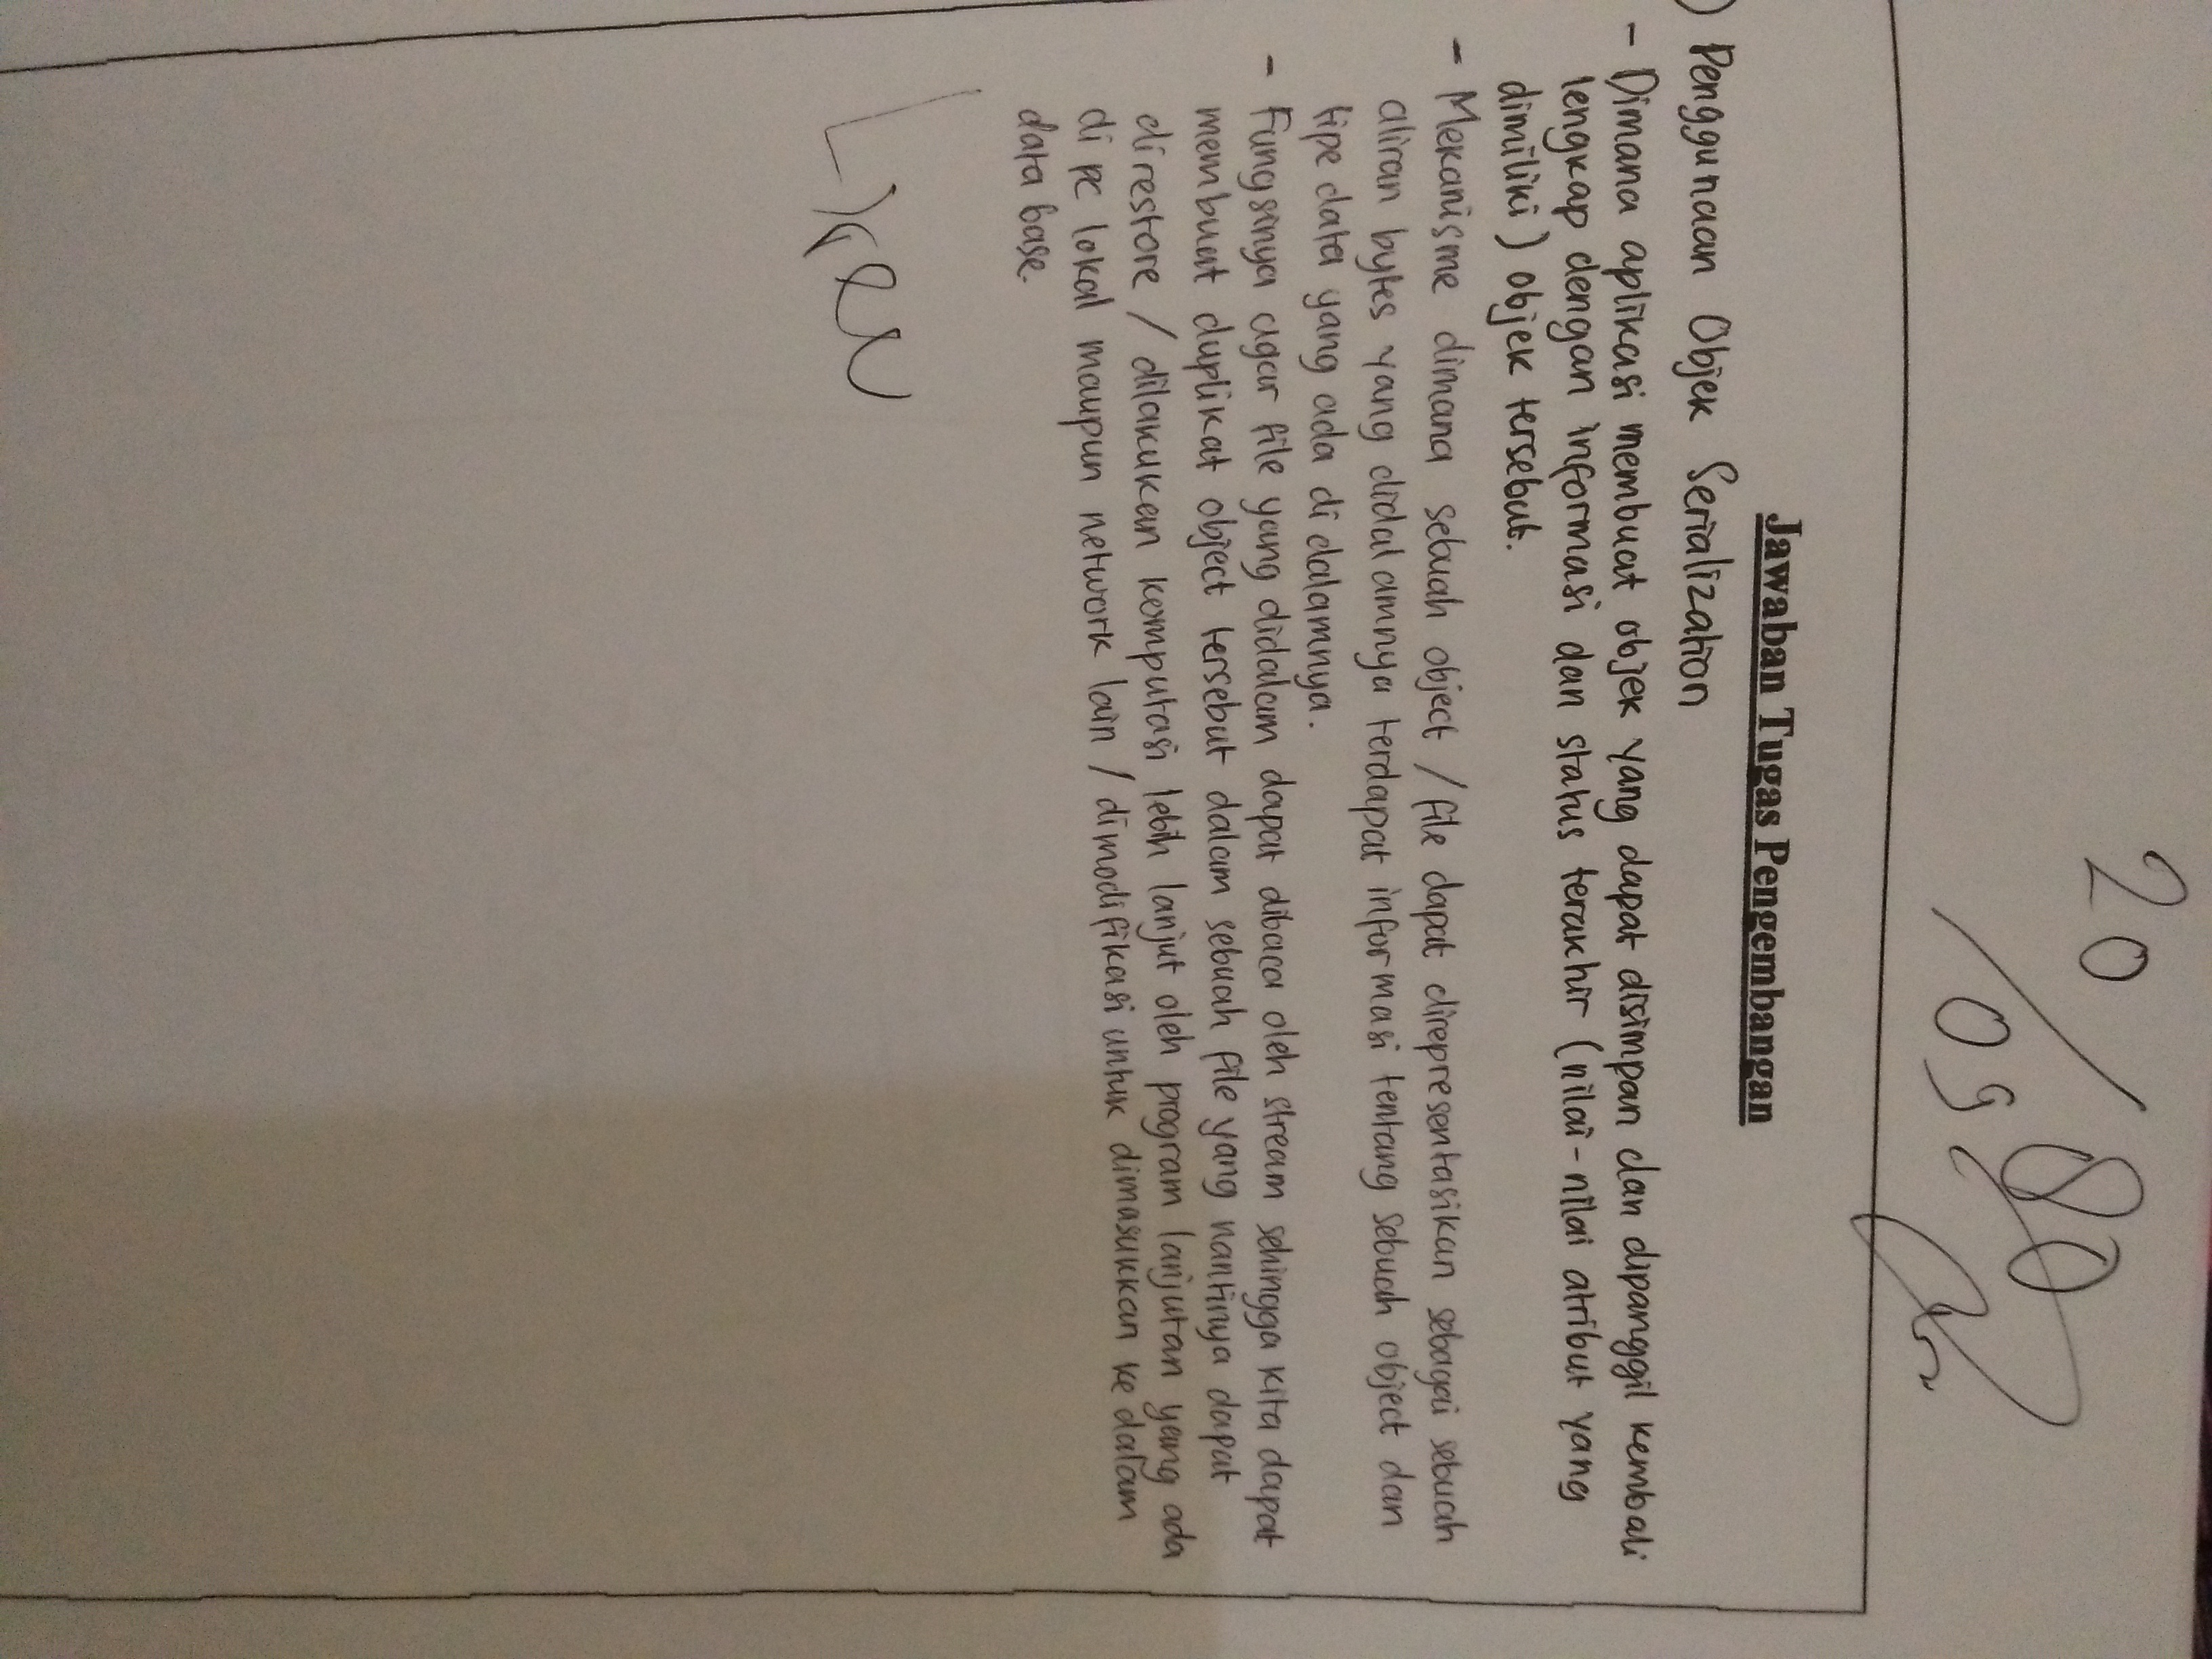 20/09 80
Jawaban Tugas Pengembangan
) Penggunaan Objek Serialization
- Dimana aplikasi membuat objek yang dapat disimpan dan dipanggil kembali
lengkap dengan informasi dan status terakhir (nilai-nilai atribut yang
dimiliki) objek tersebut.
- Mekanisme dimana sebuah object / file dapat direpresentasikan sebagai sebuah
aliran bytes yang didalamnya terdapat informasi tentang sebuah object dan
tipe data yang ada di dalamnya.
- Fungsinya agar file yang didalam dapat dibaca oleh stream sehingga kita dapat
membuat duplikat object tersebut dalam sebuah file yang nantinya dapat
direstore / dilakukan komputasi lebih lanjut oleh program lanjutan yang ada
di pc lokal maupun network lain / dimodifikasi untuk dimasukkan ke dalam
data base.